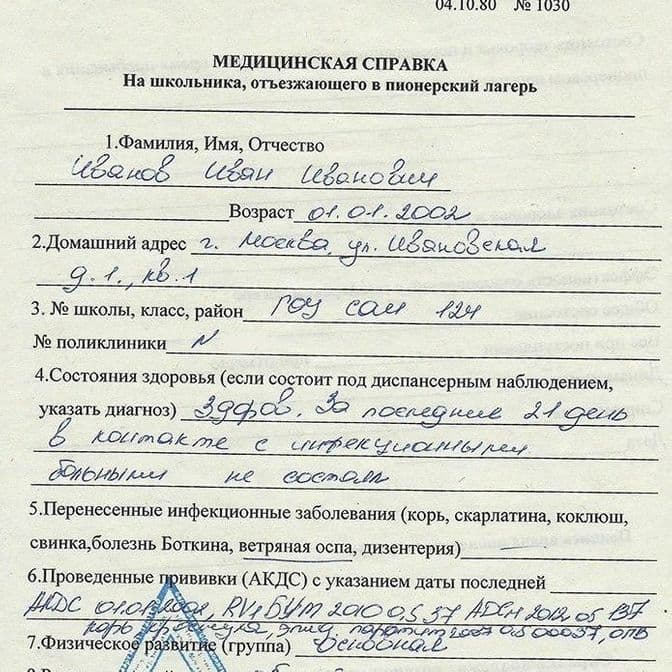 04.10.80 № 1030
МЕДИЦИНСКАЯ СПРАВКА
На школьника, отъезжающего в пионерский лагерь
1.Фамилия, Имя, Отчество
Иванов Иван Иванович
Возраст 01.01.2002
2.Домашний адрес г. Москва, ул. Ивановская
д.1., кв.1
3. № школы, класс, район ГОУ сош 124
№ поликлиники N
4.Состояния здоровья (если состоит под диспансерным наблюдением,
указать диагноз) Здоров. За последние 21 день
в контакте с инфекционными
больными не состоял
5.Перенесенные инфекционные заболевания (корь, скарлатина, коклюш,
свинка,болезнь Боткина, ветряная оспа, дизентерия)
6.Проведенные прививки (АКДС) с указанием даты последней
АКДС 01.01.2002, RV1 2010 0,5 АДСМ 2012
корь паротит 2007
7.Физическое развитие (группа) Основная